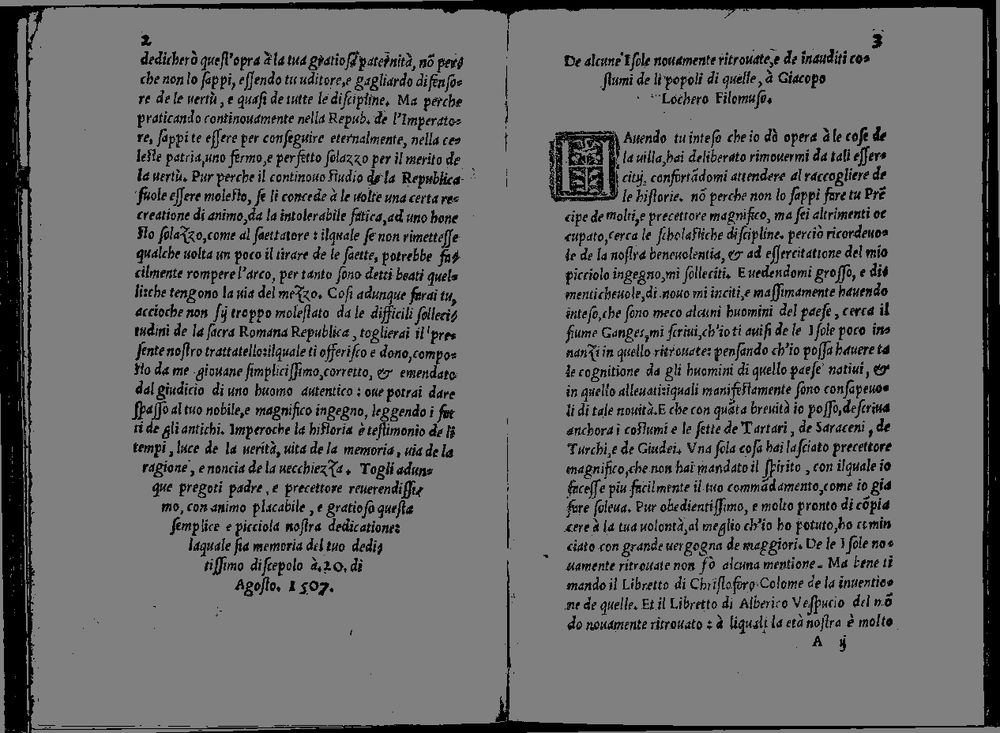 2
dedicherò quest'opra à la tua gratiosa paternità, nõ però
che non lo sappi, essendo tu uditore, e gagliardo difenso-
re de le vertù, e quasi de tutte le discipline. Ma perche
praticando continouamente nella Repub. de l'Imperato-
re, sappi te essere per conseguire eternalmente, nella ce-
leste patria, uno fermo, e perfetto solazzo per il merito de
la vertù. Pur perche il continouo studio de la Republica
suole essere molesto, se li concede à le uolte una certa re-
creatione di animo, da la intolerabile fatica, ad uno hone
sto solazzo, come al saettatore: ilquale se non rimettesse
qualche uolta un poco il tirare de le saette, potrebbe fa-
cilmente rompere l'arco, per tanto sono detti beati quel-
li che tengono la uia del mezzo. Cosi adunque farai tu,
accioche non sij troppo molestato da le difficili solleci-
tudini de la sacra Romana Republica, toglierai il pre-
sente nostro trattatello: ilquale ti offerisco e dono, compo-
sto da me giouane simplicissimo, corretto, & emendato
dal giudicio di uno huomo autentico: oue potrai dare
spasso al tuo nobile, e magnifico ingegno, leggendo i fat
ti de gli antichi. Imperoche la historia è testimonio de li
tempi, luce de la verità, uita de la memoria, uia de la
ragione, e noncia de la uecchiezza. Togli adun-
que pregoti padre, e precettore reuerendissi-
mo, con animo placabile, e gratioso questa
semplice e picciola nostra dedicatione:
laquale sia memoria del tuo dedi-
tissimo discepolo à. 20. di
Agosto. 1507.
3
De alcune Isole nouamente ritrouate, e de inauditi co-
stumi de li popoli di quelle, à Giacopo
Lochero Filomuso.
HAuendo tu inteso che io dò opera à le cose de
la uilla, hai deliberato rimouermi da tali esser-
citij, confortãdomi attendere al raccogliere de
le historie. nõ perche non lo sappi fare tu Prẽ
cipe de molti, e precettore magnifico, ma sei altrimenti oc
cupato, cerca le scholastiche discipline. perciò ricordeuo-
le de la nostra beneuolentia, & ad essercitatione del mio
picciolo ingegno, mi solleciti. E uedendomi grosso, e di-
menticheuole, di nouo mi inciti, e massimamente hauendo
inteso, che sono meco alcuni huomini del paese, cerca il
fiume Ganges, mi scriui, ch'io ti auisi de le Isole poco in-
nanzi in quello ritrouate: pensando ch'io possa hauere ta
le cognitione da gli huomini di quello paese natiui, &
in quello alleuati: iquali manifestamente sono consapeuo-
li di tale nouità. E che con quãta breuità io posso, descriua
anchora i costumi e le sette de Tartari, de Saraceni, de
Turchi, e de Giudei. Vna sola cosa hai lasciato precettore
magnifico, che non hai mandato il spirito, con ilquale io
facesse piu facilmente il tuo commãdamento, come io gia
fare soleua. Pur obedientissimo, e molto pronto di cõpia
cere à la tua volontà, al meglio ch'io ho potuto, ho comin
ciato con grande uergogna de maggiori. De le Isole no-
uamente ritrouate non fo alcuna mentione. Ma bene ti
mando il Libretto di Christoforo Colome de la inuentio-
ne de quelle. Et il Libretto di Alberico Vespucio del mõ
do nouamente ritrouato: à liquali la età nostra è molto
A ij